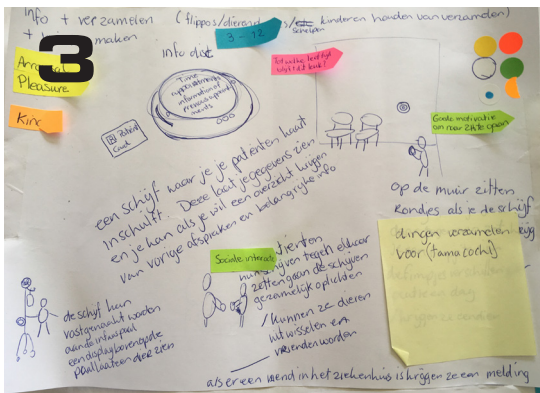 info + verzamelen (flippos/dieren /
schelpen
kinderen houden van verzamelen)
+ maken
3
3 - 12
Pleasure
info disc
Time
appointments
information of
previous appoint
ments
Patient
Card
Tot welke leeftijd
vindt dit leuk?
Goede motivatie
om naar ZH te gaan
een schijf waar je je patiënten kaart
in schuift. Deze laat je gegevens zien
en je kan als je wil een overzicht krijgen
van vorige afspraken en belangrijke info
op de muur zitten
Rondjes als je de schijf
dingen verzamelen
voor (tamacochi)
Sociale interactie
hun schijven tegen elkaar
zetten gaan de schijven
gezamelijk oplichten
/ kunnen ze dieren
uitwisselen en
vrienden worden
de schijf kan
vastgemaakt worden
aan de infuuspaal
een display boven op de
paal laat een dier zien
als er een vriend in het ziekenhuis is krijgen ze een melding